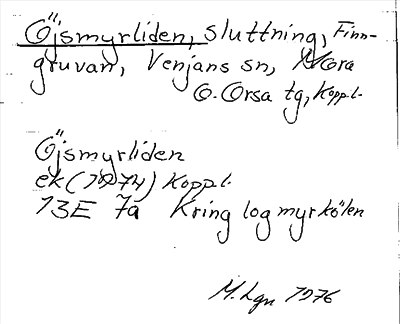 Öjsmyrliden, sluttning, Finn-
gruvan, Venjans sn, Mora
o. Orsa tg, Koppl.
Öjsmyrliden
ek (1974) Koppl.
13E 7a Kringlogmyrkölen
M. Lgn 1976